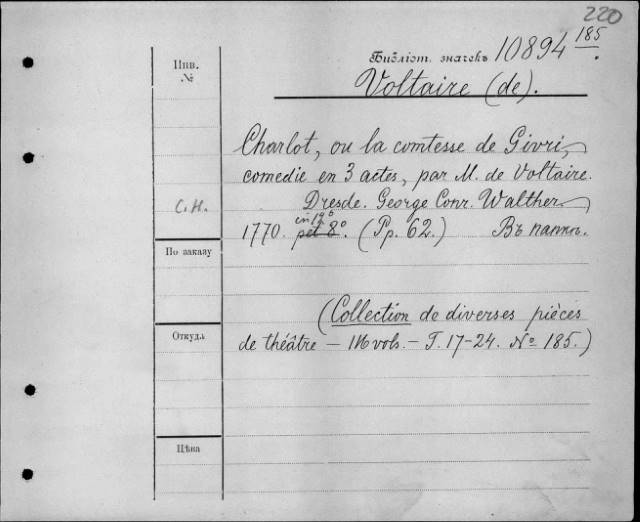 220
Инв. №
Библіот. значекъ 10894 185.
Voltaire (de).
Charlot, ou la comtesse de Givri,
comedie en 3 actes, par M. de Voltaire.
С.Н.
Dresde. George Conr. Walther
in 12°
1770. pet 8°. (Pp. 62.) Въ папкѣ.
По заказу
(Collection de diverses pièces
Откуд.
de théâtre — 116 vols. — T. 17-24. № 185.)
Цѣна